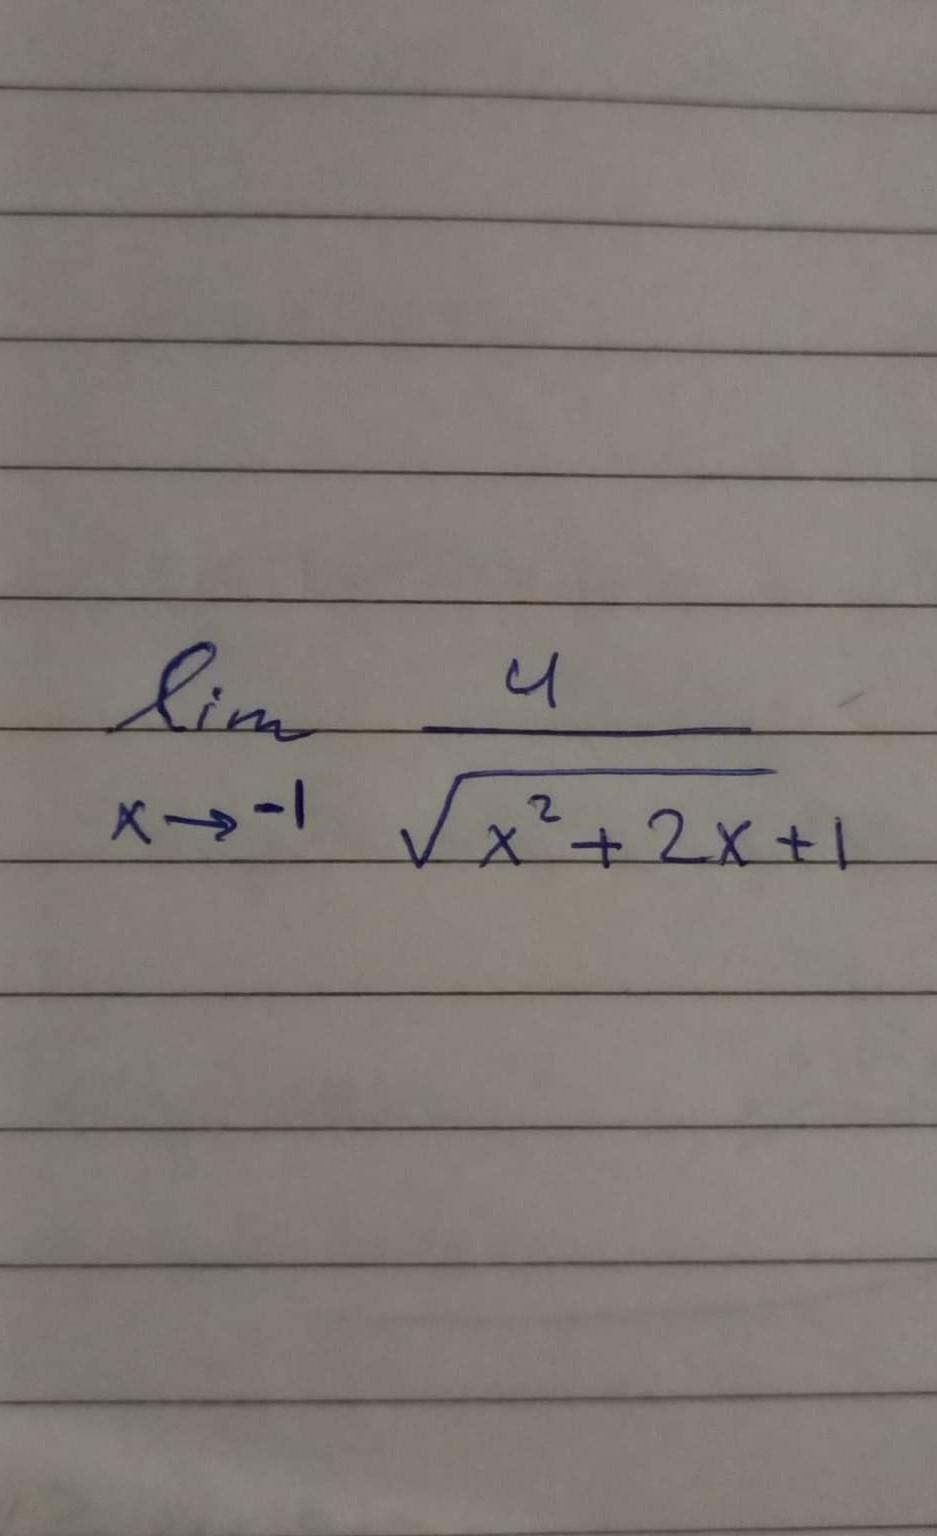 lim 4
x→-1 √x²+2x+1